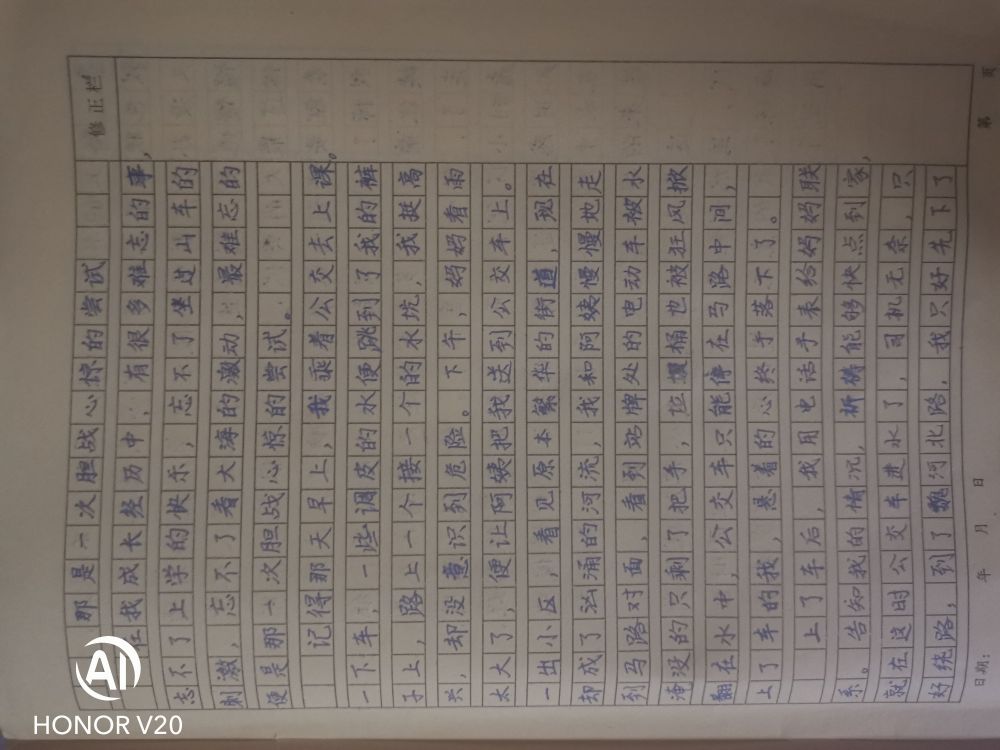 修正栏
那是一次胆战心惊的尝试
在我成长经历中，有很多难忘的事，
忘不了上学的快乐，忘不了坐过山车的
刺激，忘不了看大海的激动，最难忘的
便是那一次胆战心惊的尝试。
记得那天早上，我乘着公交去上课。
一下车，一些调皮的水便跳到了我的裤
子上，路上一个接一个的水坑，我挺高
兴，却没意识到危险。下午，妈妈看雨
太大了，便让阿姨把我送到公交车上。
一出小区，看见原本繁华的街道，现在
却成了汹涌的河流，我和阿姨慢慢地走
到马路对面，看到站牌处的电动车被水
淹没的只剩了把手，垃圾桶也被狂风掀
翻在水中，公交车只能停在马路中间，
上了车的我，悬着的心终于落下了。
上了车后，我用电话手表给妈妈联
系。告知我的情况，祈祷能够快点到家，
就在这时公交车进水了，司机无奈，只
好绕路，到了魏河北路，我只好先下了
日期： 年 月 日 第 页
AI
HONOR V20